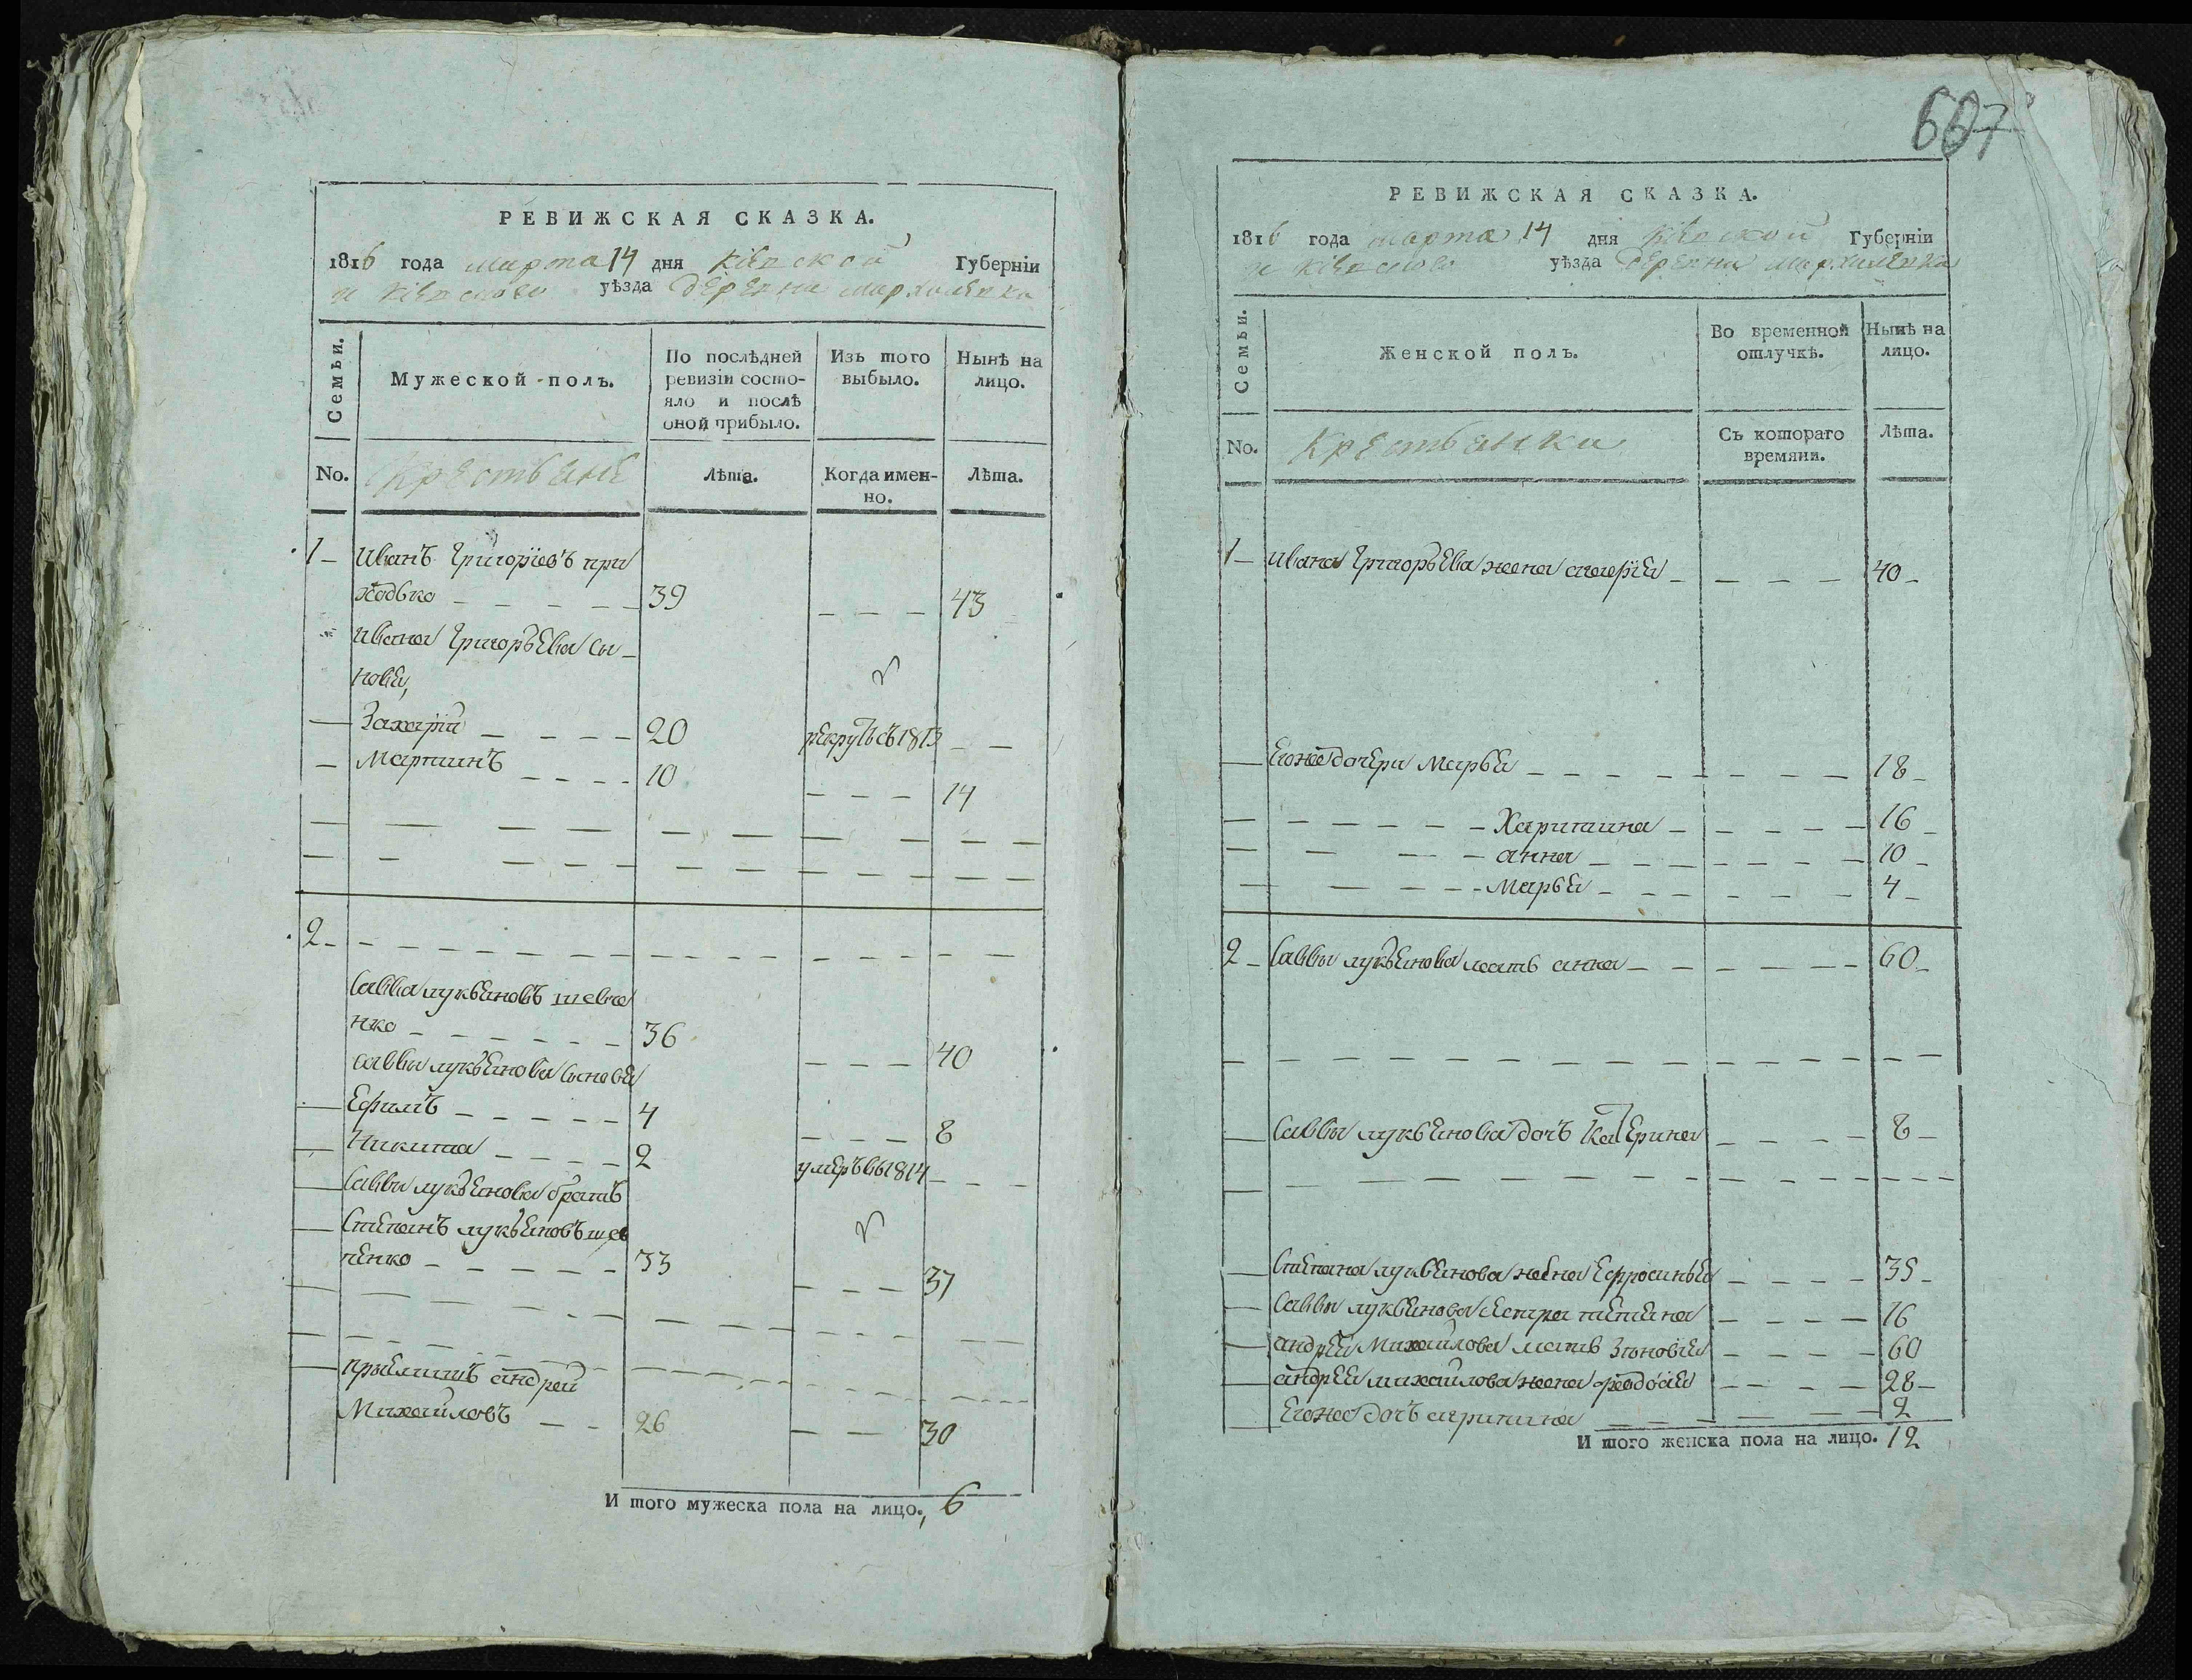 РЕВИЖСКАЯ СКАЗКА.
1816 года марта 14 дня Кіевской Губерніи
и Кіевского уѣзда деревни Мархалевка
Семьи.
Мужеской полъ.
По послѣдней ревизіи состояло и послѣ оной прибыло.
Изъ того выбыло.
Нынѣ на лицо.
No.
Крестьяне
Лѣта.
Когда именно.
Лѣта.
1 Иванъ Григоріевъ при
ходько 39 43
Ивана Григорьева сы
новья,
Захарій 20 рекрутъ съ 1813
Мартинъ 10 14
2
Савва лукъяновъ шевче
нко 36 40
саввы лукъянова сыновья
Ефимъ 4 8
Никита 2 умеръ въ 1814
Саввы лукъянова братъ
Степанъ лукъяновъ шев
ченко 33 37
прыймитъ андрей
Михайловъ 26 30
И того мужеска пола на лицо. 6
607
РЕВИЖСКАЯ СКАЗКА.
1816 года марта 14 дня Кіевской Губерніи
и Кіевского уѣзда деревни Мархалевка
Семьи.
Женской полъ.
Во временной отлучкѣ.
Нынѣ на лицо.
No.
Крестьянки
Съ котораго времяни.
Лѣта.
1 Ивана Григорьева жена 40
Егоже дочери Марья 18
Харитина 16
анна 10
Марья 4
2 Саввы лукъянова мать анна 60
Саввы лукъянова дочъ Катерина 8
Степана лукъянова жена Ефросинья 35
Саввы лукъянова сестра 16
андрея Михайлова мать Зѣновія 60
андрея михайлова жена феодосія 28
Егоже дочъ агрипина 2
И того женска пола на лицо. 12